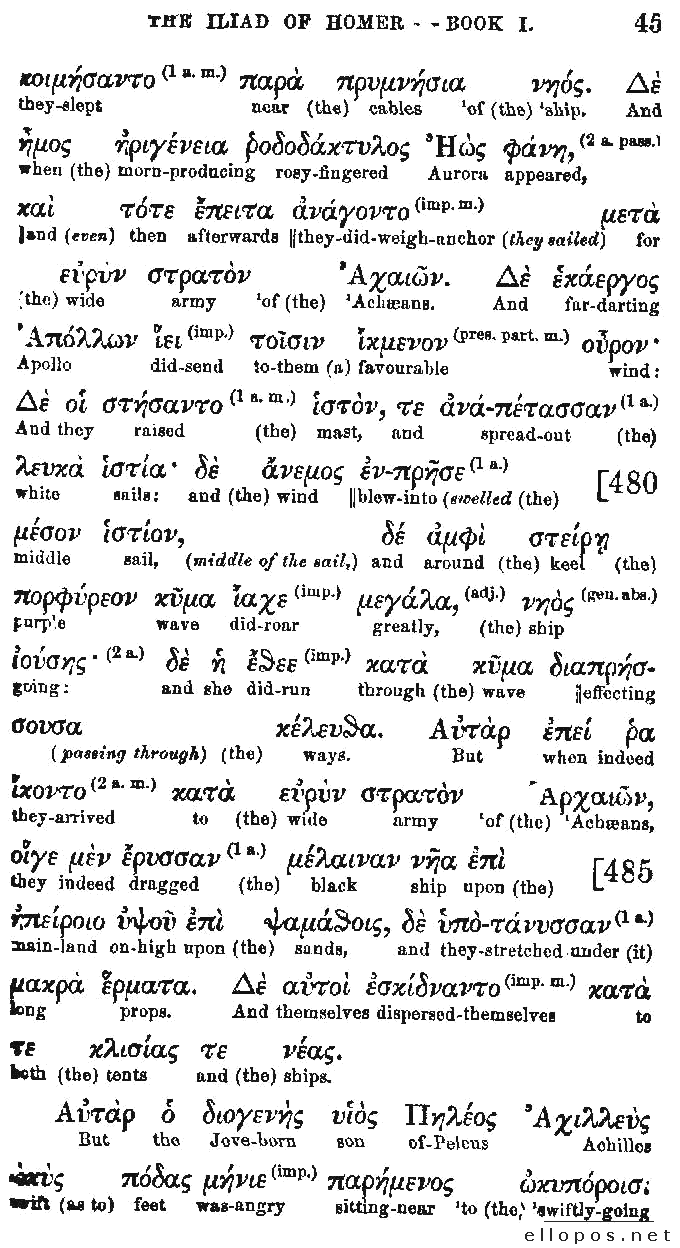 THE ILIAD OF HOMER - - BOOK I. 45
κοιμήσαντο (1 a. m.) παρὰ πρυμνήσια νηός. Δὲ
they-slept near (the) cables 'of (the) 'ship. And
ἦμος ἠριγένεια ῥοδοδάκτυλος Ἠὼς φάνη, (2 a. pass.)
when (the) morn-producing rosy-fingered Aurora appeared,
καὶ τότε ἔπειτα ἀνάγοντο (imp. m.) μετὰ
(even) then afterwards ||they-did-weigh-anchor (they sailed) for
εὐρὺν στρατὸν Ἀχαιῶν. Δὲ ἑκάεργος
(the) wide army 'of (the) 'Achæans. And far-darting
Ἀπόλλων ἵει (imp.) τοῖσιν ἴκμενον (pres. part. m.) οὖρον·
Apollo did-send to-them (a) favourable wind:
Δὲ οἱ στήσαντο (1 a. m.) ἱστὸν, τε ἀνά-πέτασσαν (1 a.)
And they raised (the) mast, and spread-out (the)
λευκὰ ἱστία· δὲ ἄνεμος ἐν-πρῆσε (1 a.) [480
white sails: and (the) wind ||blew-into (swelled (the)
μέσον ἱστίον, δέ ἀμφὶ στείρῃ
middle sail, (middle of the sail,) and around (the) keel (the)
πορφύρεον κῦμα ἴαχε (imp.) μεγάλα, (adj.) νηὸς (gen. abs.)
purple wave did-roar greatly, (the) ship
ἰούσης· (2 a.) δὲ ἡ ἔθεε (imp.) κατὰ κῦμα διαπρήσ-
going: and she did-run through (the) wave ||effecting
σουσα κέλευθα. Αὐτὰρ ἐπεί ῥα
(passing through) (the) ways. But when indeed
ἵκοντο (2 a. m.) κατὰ εὐρὺν στρατὸν Ἀρχαιῶν,
they-arrived to (the) wide army 'of (the) 'Achæans,
οἵγε μὲν ἔρυσσαν (1 a.) μέλαιναν νῆα ἐπὶ [485
they indeed dragged (the) black ship upon (the)
ἠπείροιο ὑψοῦ ἐπὶ ψαμάθοις, δὲ ὑπὸ-τάνυσσαν (1 a.)
main-land on-high upon (the) sands, and they-stretched under (it)
μακρὰ ἕρματα. Δὲ αὐτοὶ ἐσκίδναντο (imp. m.) κατὰ
long props. And themselves dispersed-themselves to
τε κλισίας τε νέας.
both (the) tents and (the) ships.
Αὐτὰρ ὁ διογενὴς υἱὸς Πηλέος Ἀχιλλεὺς
But the Jove-born son of-Peleus Achilles
ὠκὺς πόδας μήνιε (imp.) παρήμενος ὠκυπόροισι
swift (as to) feet was-angry sitting-near 'to (the) 'swiftly-going
ellopos.net